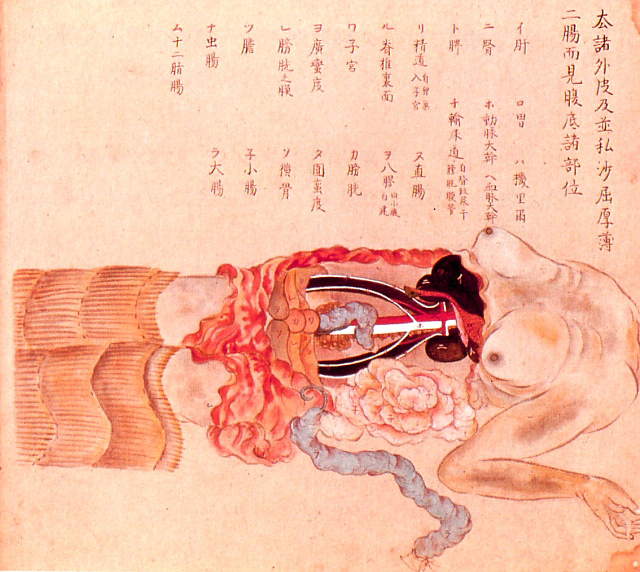 去諸外皮及並私沙屈厚薄
二腸而見腹底諸部位
イ肝 ロ胃 ハ機里爾
ニ腎 ホ動脉大幹 ヘ血脉大幹
ト チ輸尿道
リ精道 自卵巣入子宮 ヌ直腸
ル脊椎裏面 ヲ八膠
ワ子宮 カ膀胱
ヨ廣蠻度 タ圓蛮度
レ膀胱之膜 ソ横骨
ツ膽 子小腸
ナ虫腸 ラ大腸
ム十二脂腸